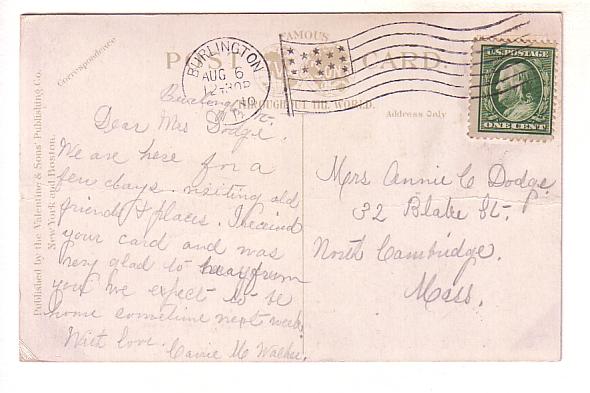 Correspondence
Published by the Valentine & Sons' Publishing Co.
New York and Boston.
FAMOUS
POST CARD.
THROUGHOUT THE WORLD.
Address Only
BURLINGTON
AUG 6
12-30P
U.S. POSTAGE
ONE CENT
Burlington Vt.
Dear Mrs Dodge.
We are here for a
few days visiting old
friends & places. I received
your card and was
very glad to hear from
you we expect to be
home sometime next week.
With love.
Carrie M
Mrs Annie C Dodge
32 Blake St.
North Cambridge.
Mass.